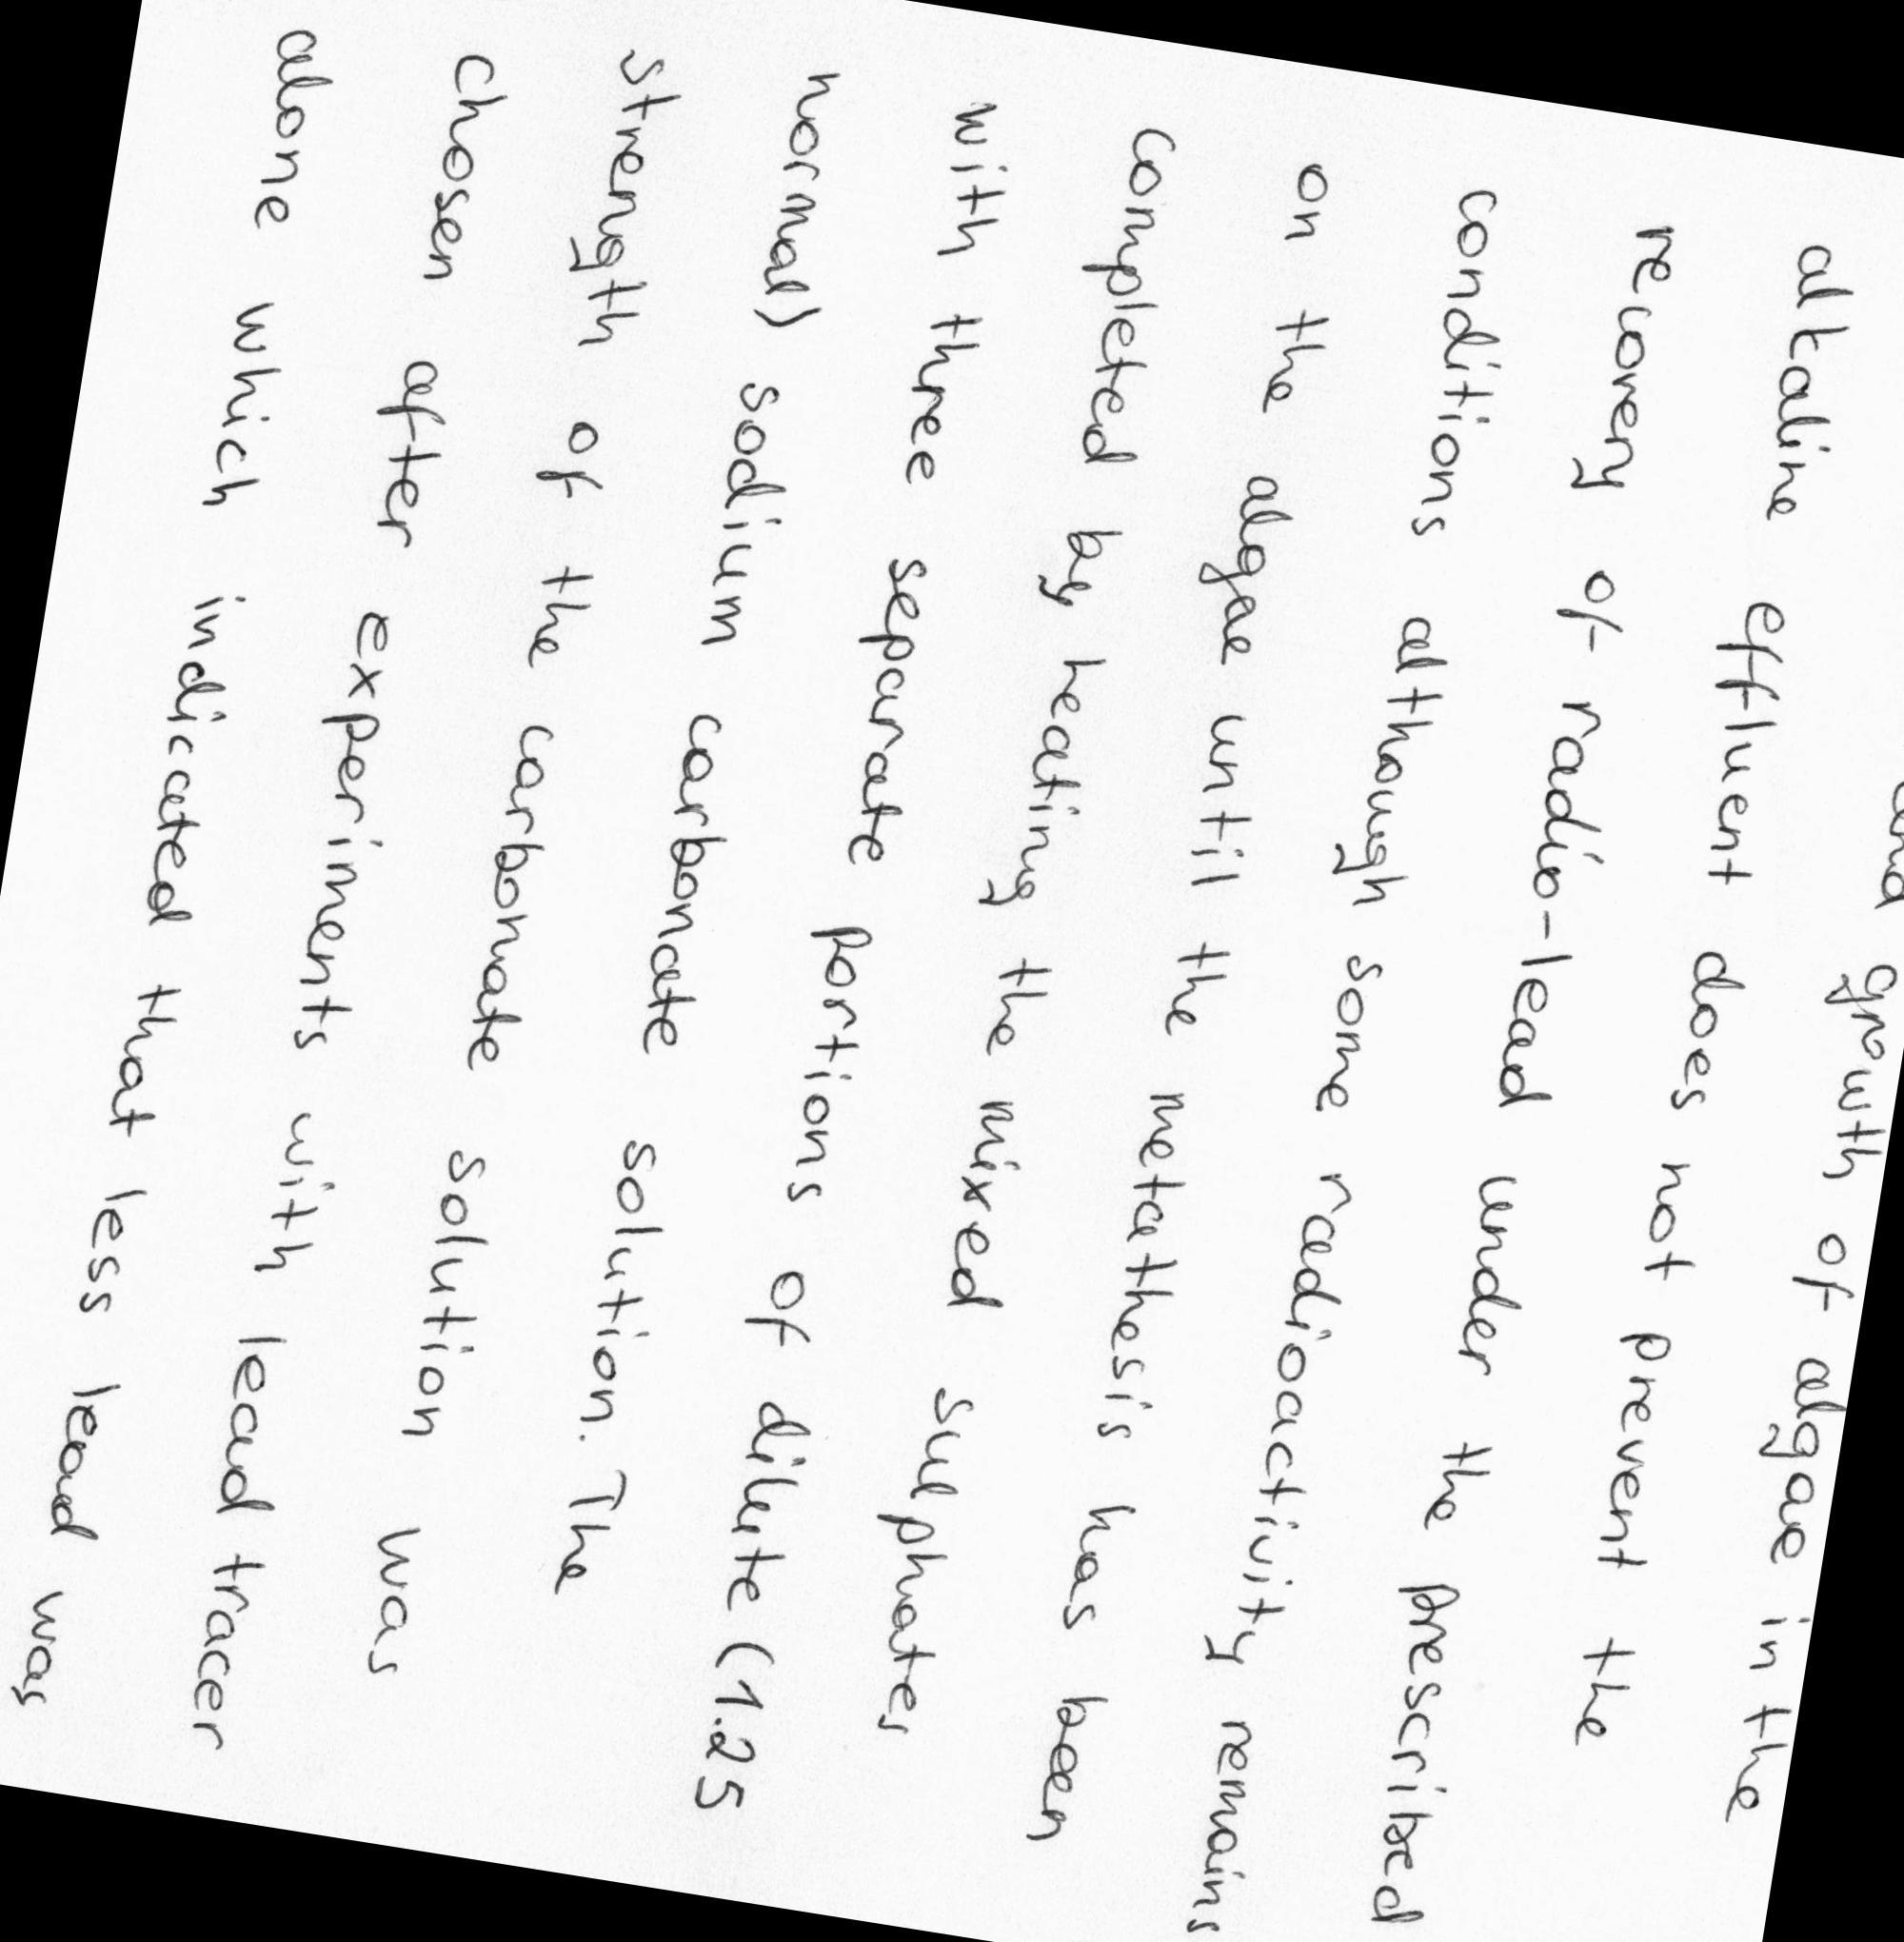 and growth of algae in the
alkaline effluent does not prevent the
recovery of radio-lead under the prescribed
conditions although some radioactivity remains
on the algae until the metathesis has been
completed by heating the mixed sulphates
with three separate portions of dilute (1.25
normal) sodium carbonate solution. The
strength of the carbonate solution was
chosen after experiments with lead tracer
alone which indicated that less lead was